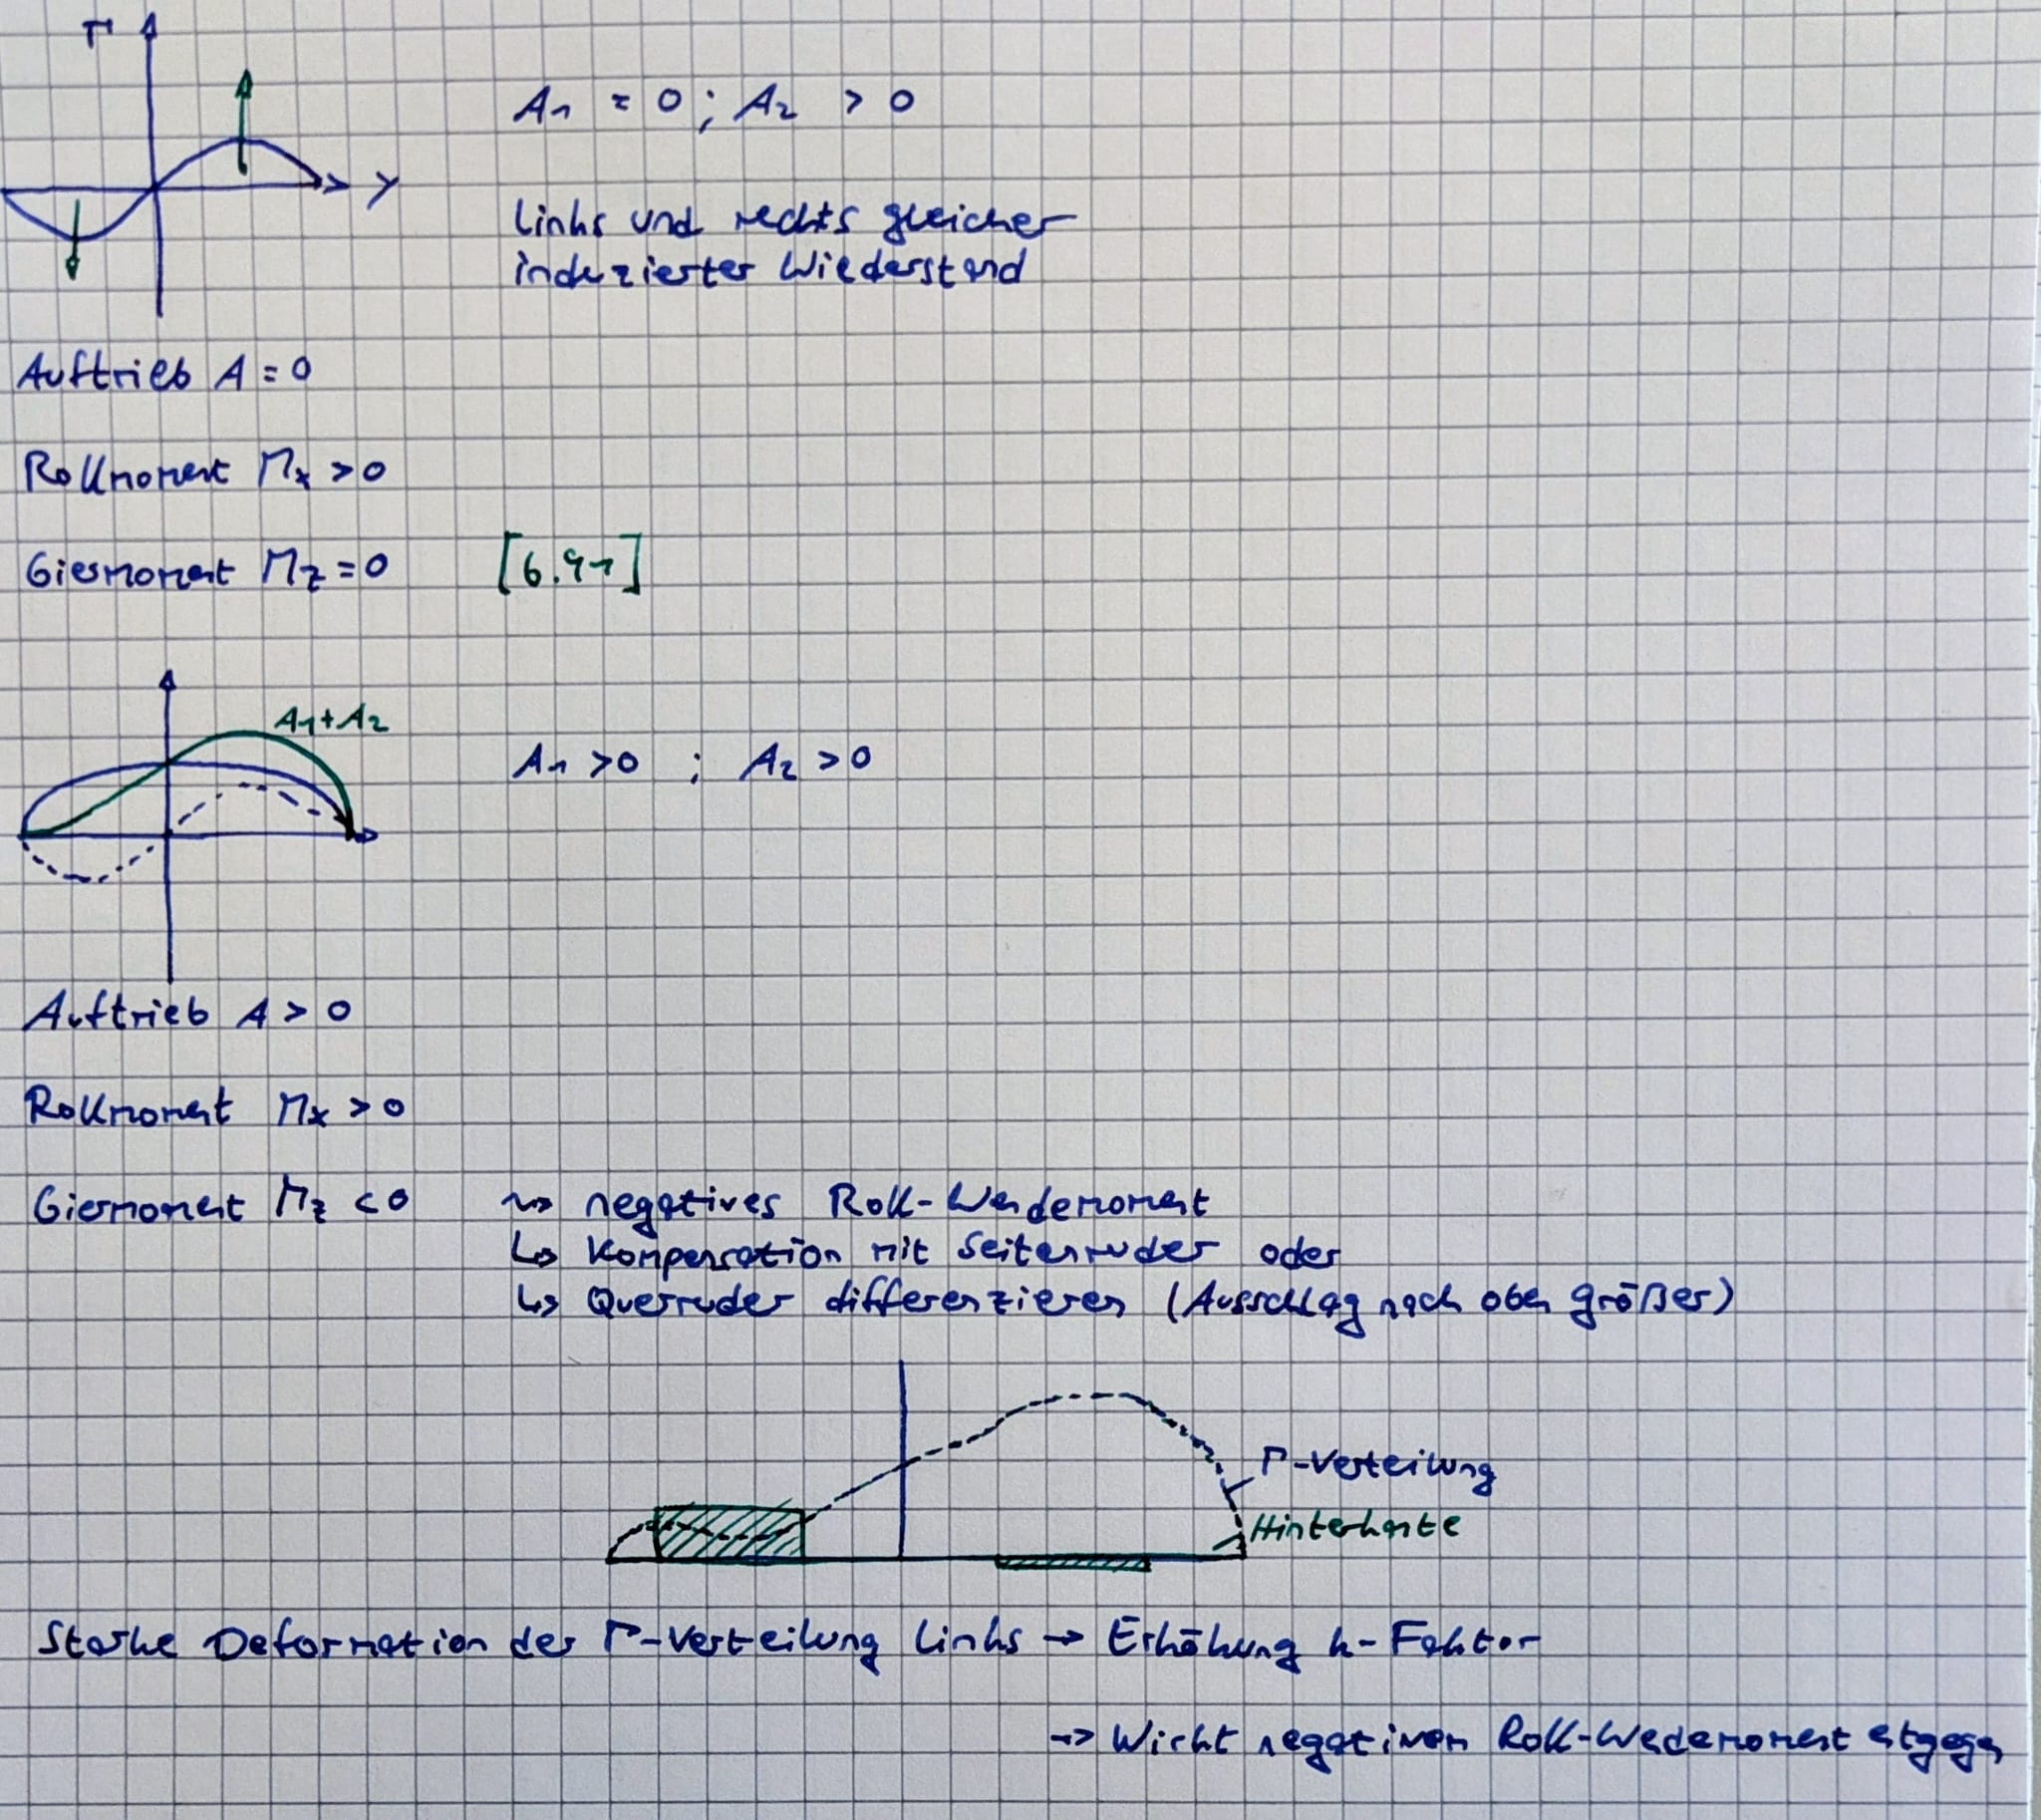 Γ
y
A₁ = 0 ; A₂ > 0
Links und rechts gleicher
induzierter Wiederstand
Auftrieb A = 0
Rollmoment Mx > 0
Giermoment Mz = 0 [6.41]
A₁+A₂
A₁ > 0 ; A₂ > 0
Auftrieb A > 0
Rollmoment Mx > 0
Giermoment Mz < 0 ⇝ negatives Roll-Wendemoment
↳ Kompensation mit Seitenruder oder
↳ Querruder differenzieren (Ausschlag nach oben größer)
Γ-Verteilung
Hinterkante
Starke Deformation der Γ-Verteilung links → Erhöhung k-Faktor
→ Wirkt negativen Roll-Wedemoment etgegen